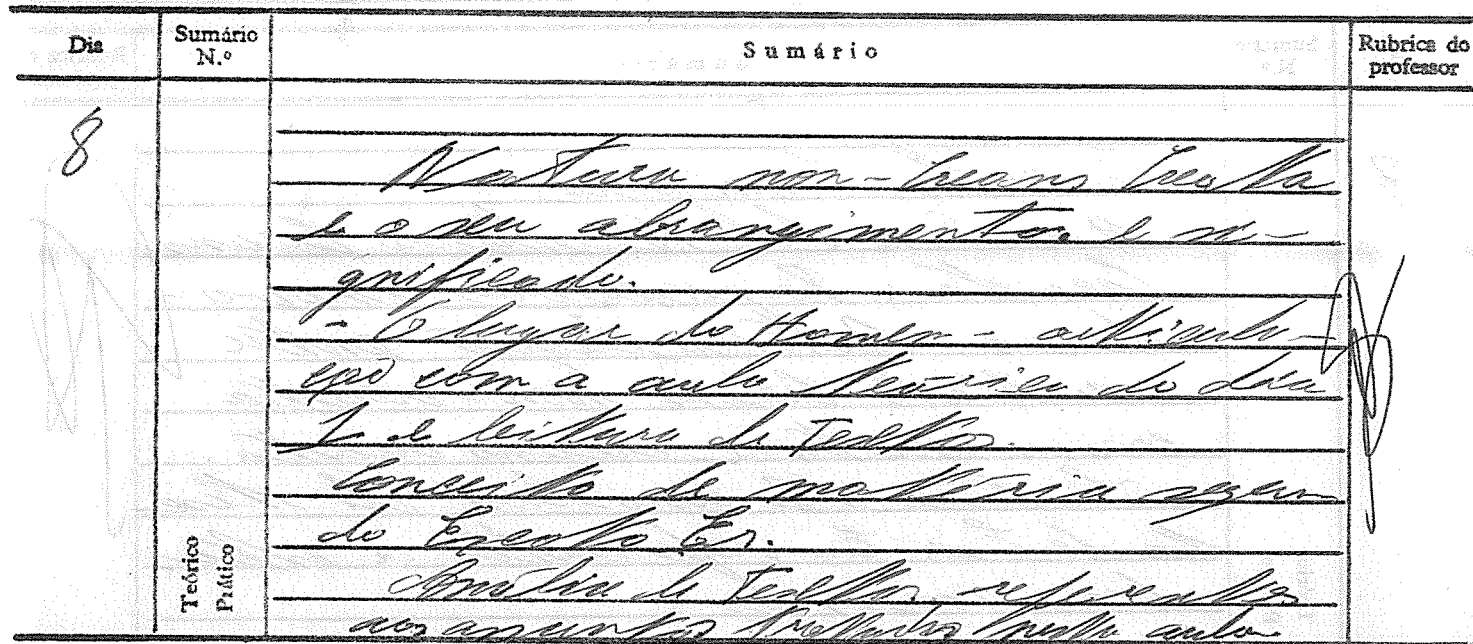 Dia Sumário N.º Sumário Rubrica do professor
8
Natura non-creans creata
e o seu abrangimento e si-
gnificado.
- O lugar do Homem - articula-
ção com a aula teórica do dia
1 e leitura de textos.
Conceito de matéria segun
do Escoto Er.
Análise de textos referentes
aos assuntos tratados nesta aula
Teórico
Prático